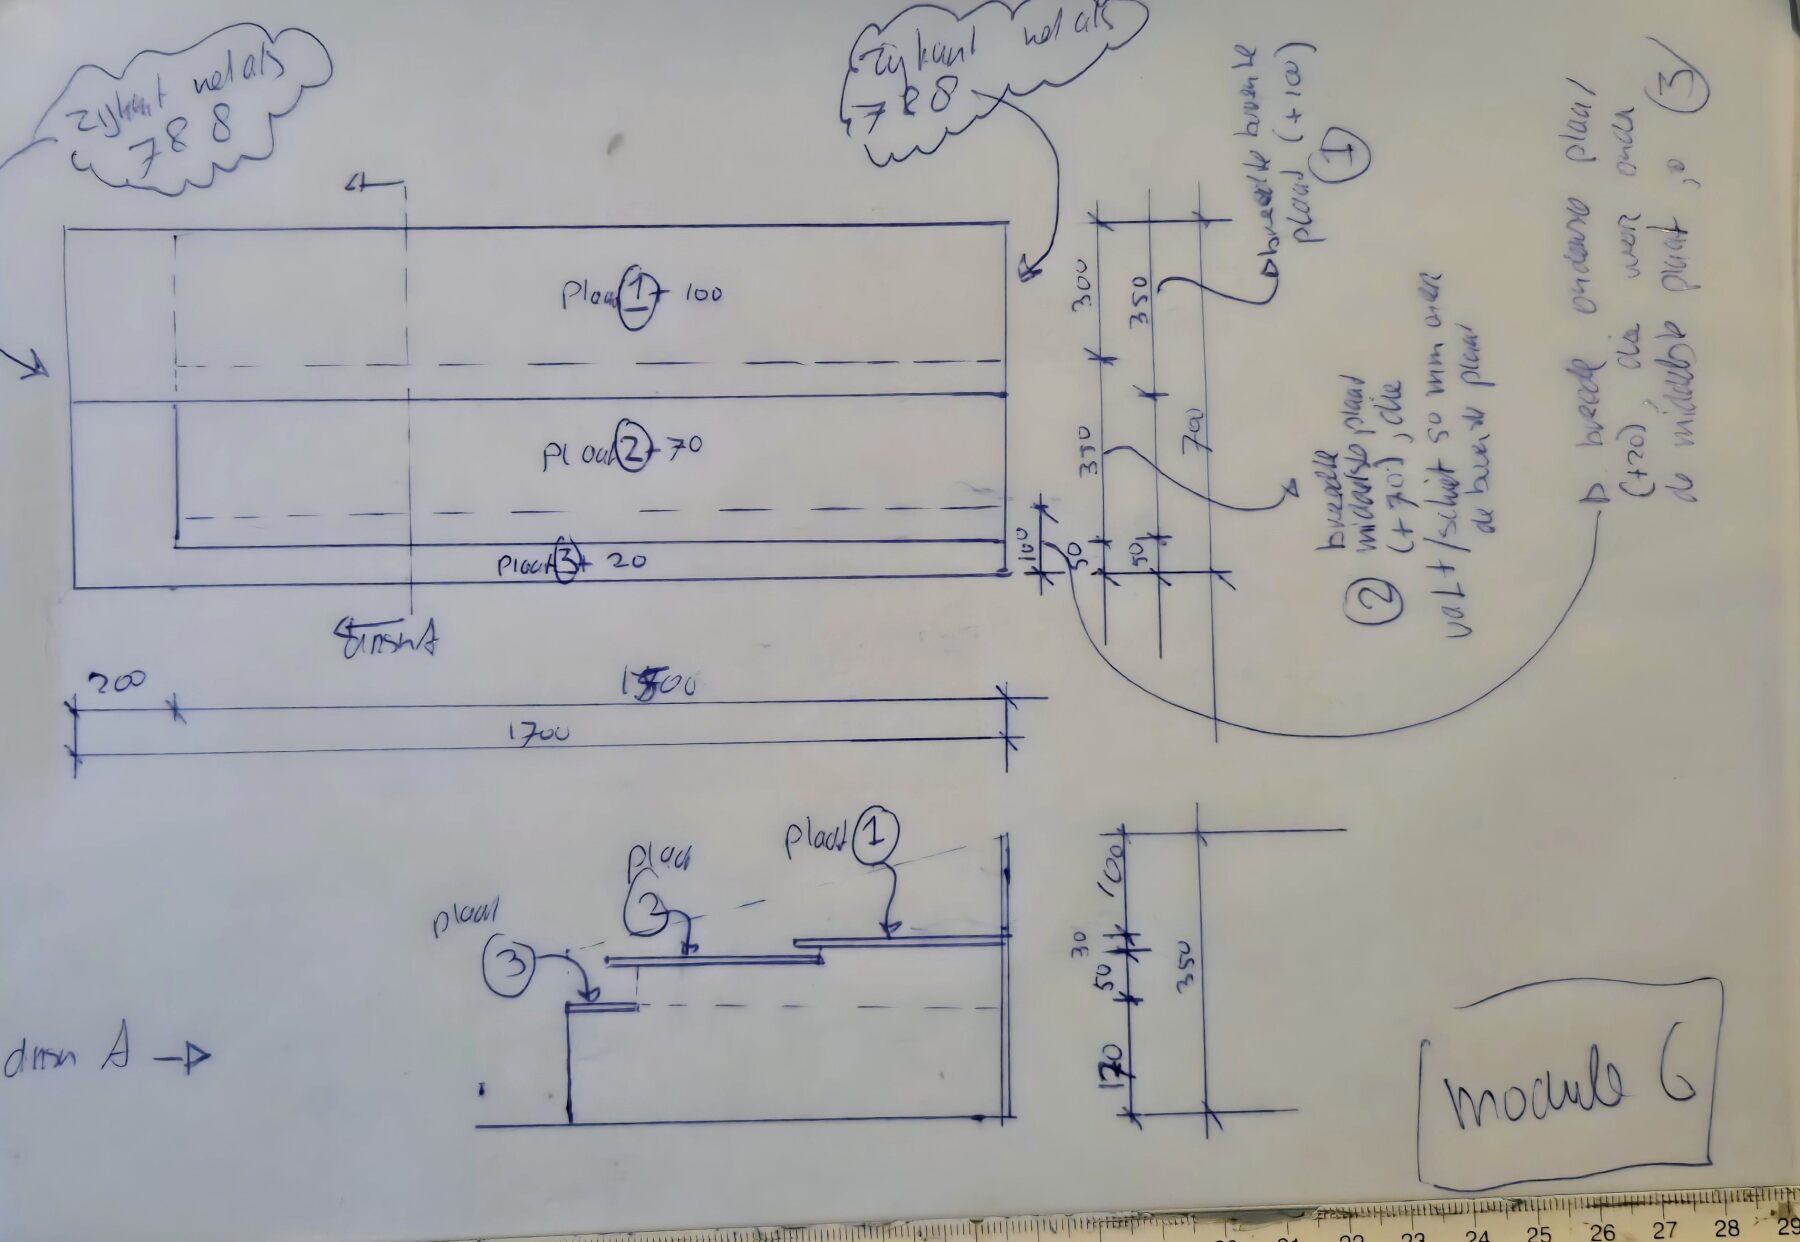 zijkant net als
7 & 8
zijkant net als
7 & 8
plaat 1 + 100
plaat 2 + 70
plaat 3 + 20
300
350
350
700
100
50
50
breedte bovenste
plaat (+100)
1
breedte
middelste plaat
(+70), die
2
valt/schiet 50 mm onder
de bovenste plaat
breedte onderste plaat
(+20), die weer onder
de middelste plaat
3
drsn A
200
1500
1700
plaat 1
plaat
2
plaat
3
100
30
50
170
350
drsn A
module 6
21 22 23 24 25 26 27 28 29